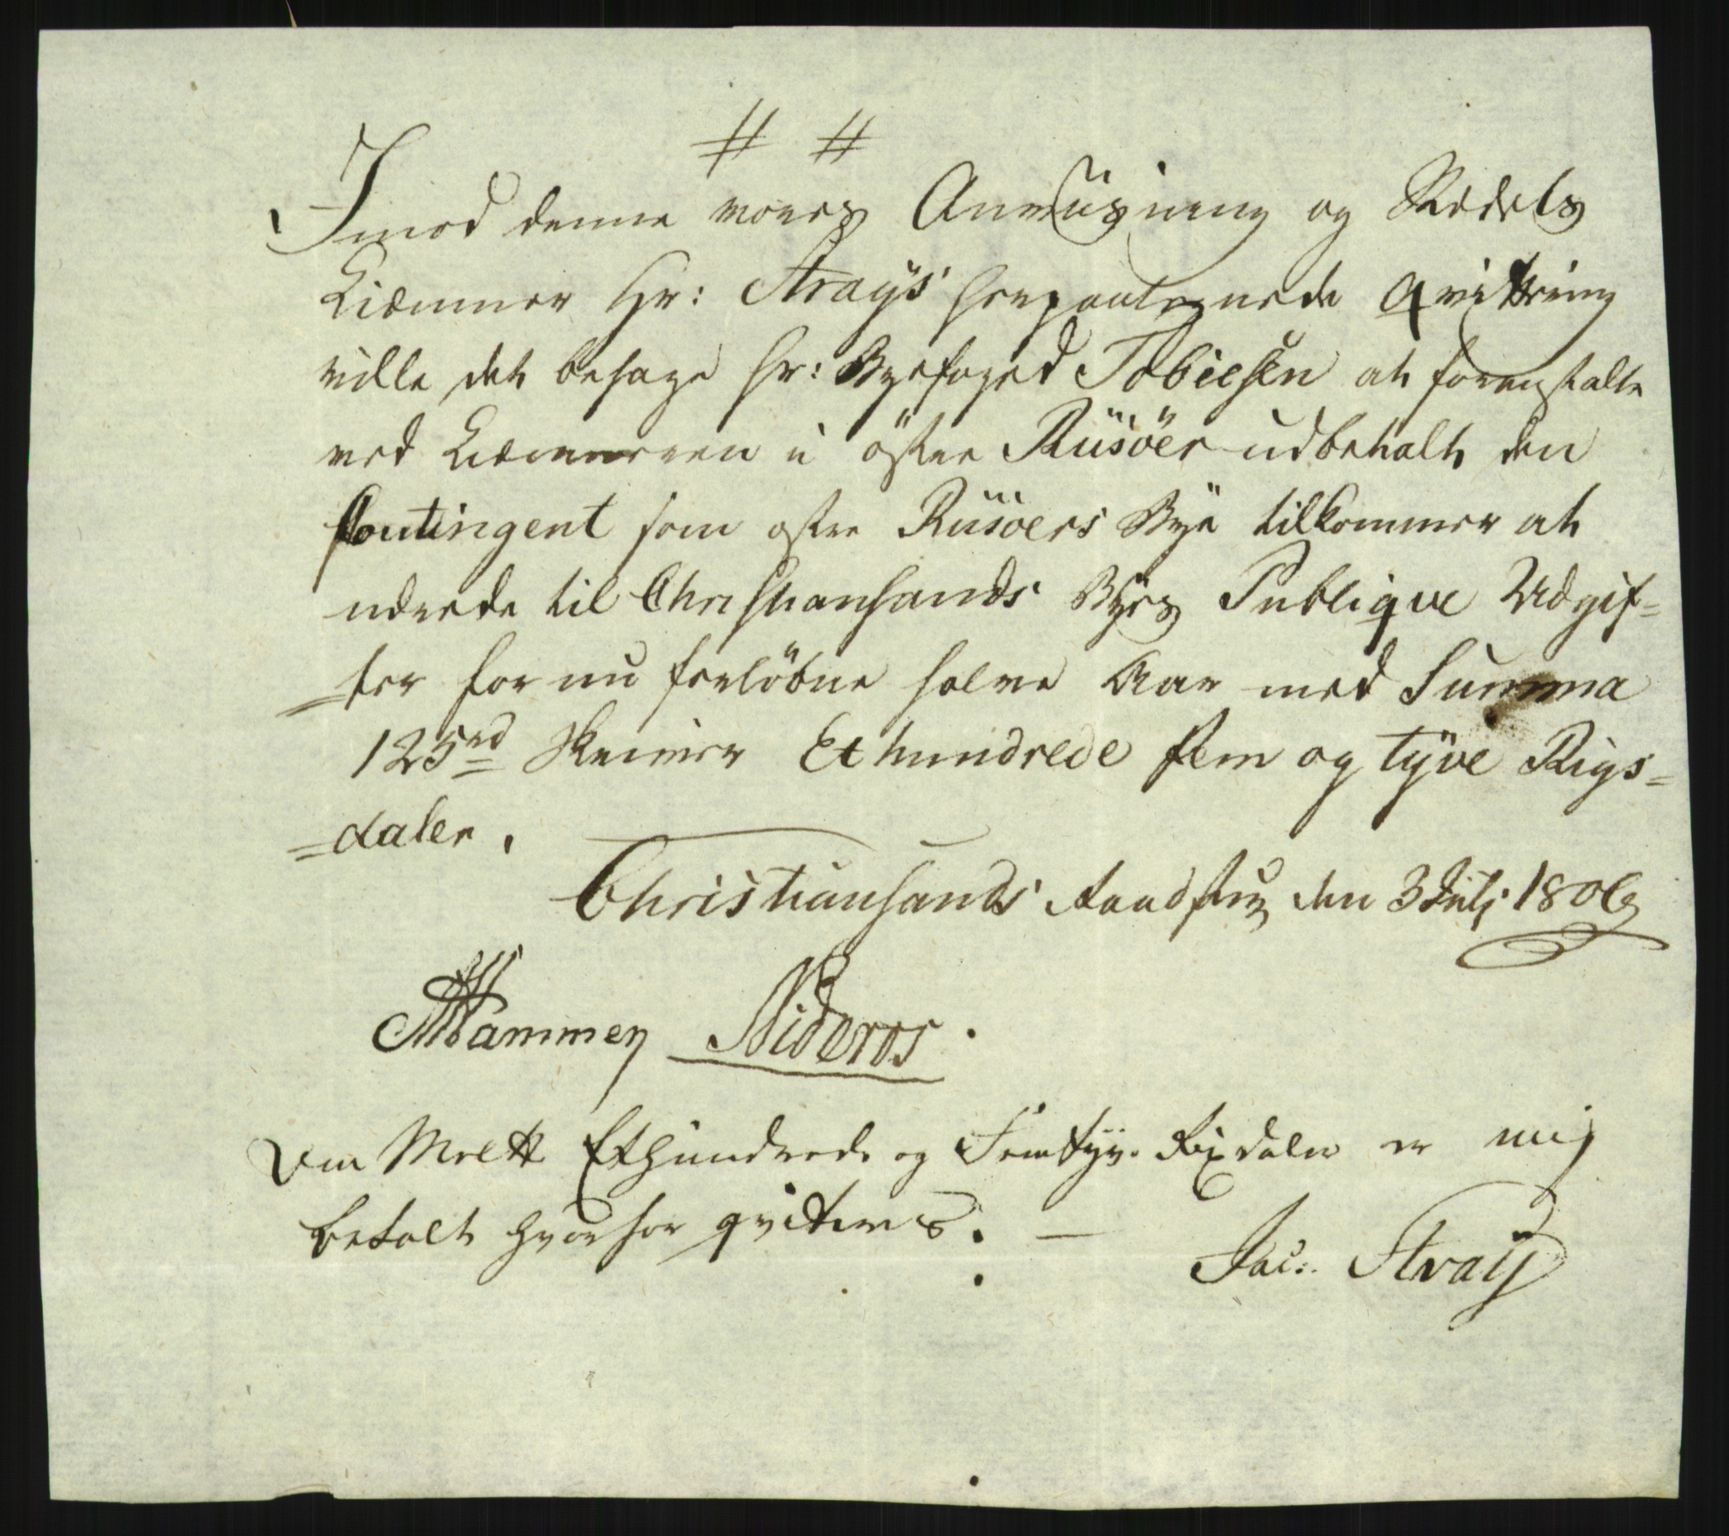 # #
Imod denne vores Anviisning og Stædets
Kiæmner Hr: Strays herpaategnede Qvittering
ville det behage Hr: Byefoged Tobiesen at foranstalte
ved Kiæmneren i öster Riisöer udbetalt den
Contingent som öster Riisöers Bÿe tilkommer at
udrede til Christiansands Byes Publiqve Udgif=
=ter for nu forløbne halve Aar med Summa
125 rd skriver Et hundrede fem og tÿve Rigs=
=daler.
Christiansands Raadstue den 3 Julj 1806
Hammer Nideros.
Om Melte Ethundrede og Femtÿve Rixdaler er mig
betalt hvorfor qvitteres. —
Jac: Straÿ